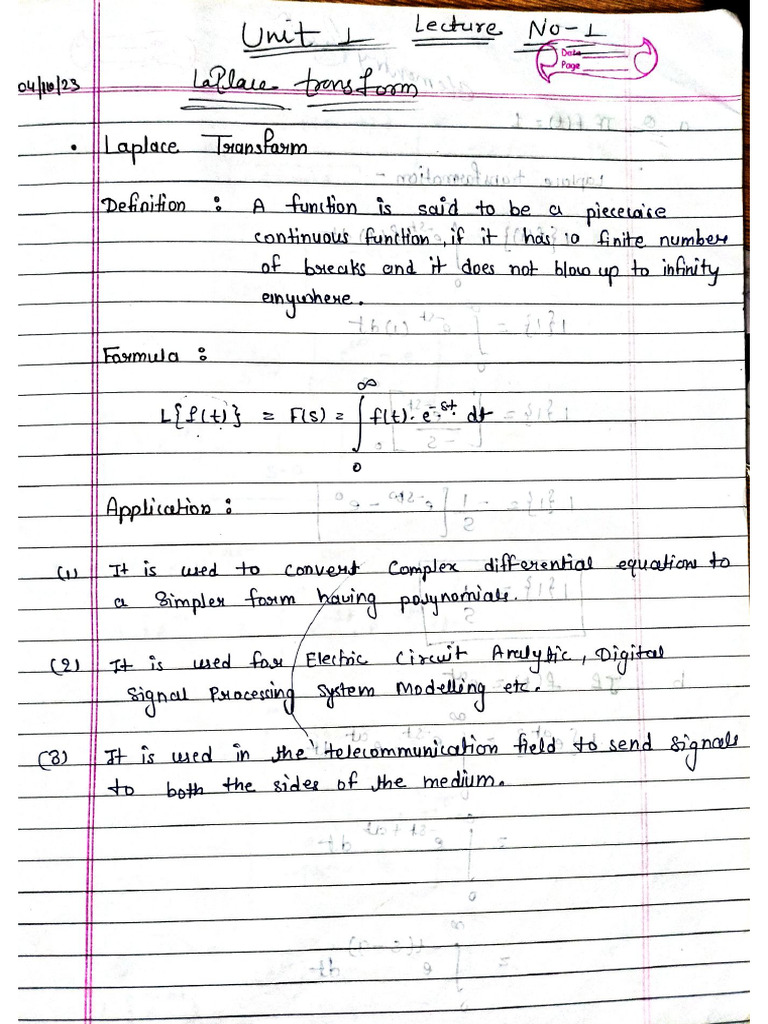 Unit 1 Lecture No-1
Date
Page
04/10/23 Laplace transform
• Laplace Transform
Definition : A function is said to be a piecewise
continuous function, if it has a finite number
of breaks and it does not blow up to infinity
anywhere.
Formula :
L{f(t)} = F(s) = ∫₀^∞ f(t). e^-st. dt
Application :
(1) It is used to convert Complex differential equation to
a simpler form having polynomials.
(2) It is used for Electric Circuit Analytic, Digital
Signal Processing System Modelling etc.
(3) It is used in the telecommunication field to send signals
to both the sides of the medium.